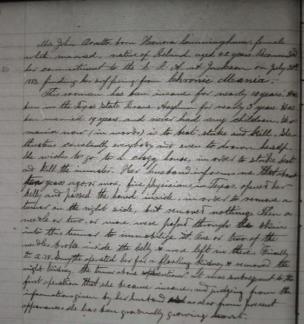 Mrs John Aratto born Honora Cunningham, female
white married, native of Ireland aged 42 years. Reexamined
her commitment to the S. L. A. at Jackson on July 28th
1882 finding her suffering from Chronic Mania.
This woman has been insane for nearly 10 years. Has
been in the Texas State Insane Asylum for nearly 3 years. Has
been married 19 years and never had any children. Her
mania now (in words) is to beat strike and kill. She
threatens constantly everybody and even to drown herself
She wishes to go to a clogg house, in order to strike beat
and kill the inmates. Her husband informs me that about
ten years ago or more, five physicians, in Texas opened her
belly and passed the hand inside, in order to remove a
tumor in the right side, but removed nothing. Then a
needle or two or more were passed through the skin
into this tumor to immobilize it. One or two of the
needles broke inside the belly & were left in there. Finally
Dr A. W. Smythe operated her for a floating kidney & removed the
right kidney, the tumor above It was subsequent to the
first operation that she became insane, and judging from the
information given by her husband as also from present
appearances she has been gradually growing worst.